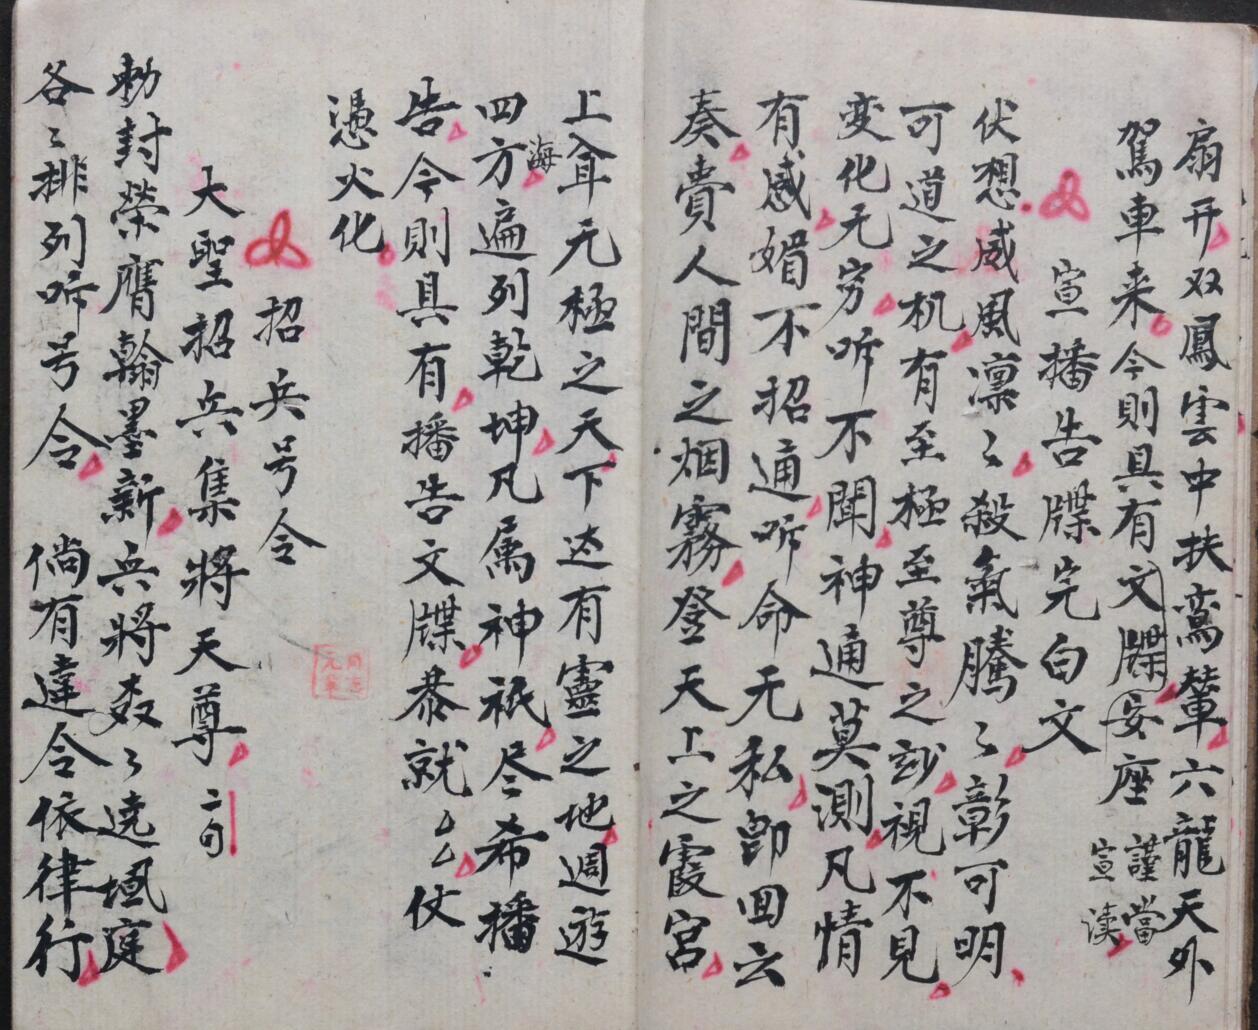 扇开双鳳雲中扶鸾輦六龍天外
駕車来今則具有文牒安座謹當
宣读
宣播告牒完白文
伏想威風凛〻殺氣騰〻彰可明
可道之机有至極至尊之妙視不見
变化无穷听不聞神通莫測凡情
有感媚不招通听命无私即回云
奏賣人間之烟霧登天上之霞宮
上耷元極之天下达有靈之地週遊
四方海遍列乾坤凡属神祇尽希播
告今則具有播告文牒恭就〻〻仗
憑火化
招兵号令
大聖招兵集將天尊 二句
勅封榮膺翰墨新兵將森〻遶
庭
各〻排列听号令 倘有違令依律行